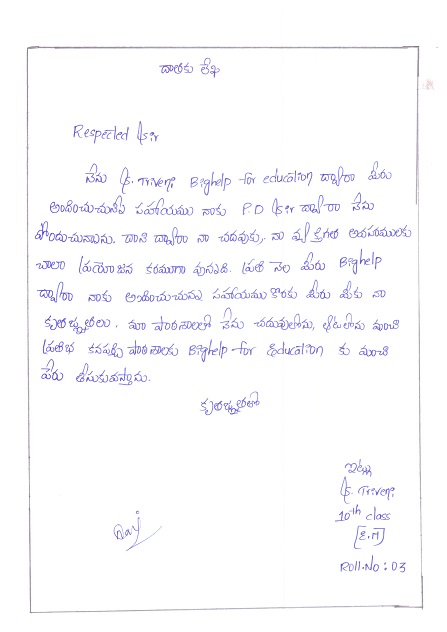 దాతకు లేఖ
Respected Sir
నేను S. Triveni Bighelp for education ద్వారా మీరు
అందించుచున్న సహాయము నాకు P.D Sir ద్వారా నేను
పొందుచున్నాను. దాని ద్వారా నా చదువుకు, నా వ్యక్తిగత అవసరములకు
చాలా ప్రయోజన కరముగా వున్నది. ప్రతి నెల మీరు Bighelp
ద్వారా నాకు అందించుచున్న సహాయము కొరకు మీరు మీకు నా
కృతజ్ఞతలు. మా పాఠశాలలో నేను చదువులోను, ఆటలోను మంచి
ప్రతిభ కనపర్చి పాఠశాలకు Bighelp for Education కు మంచి
పేరు తీసుకువస్తాను.
కృతజ్ఞతలతో
ఇట్లు
S. Triveni
10th class
[E.M]
Roll.No : 03